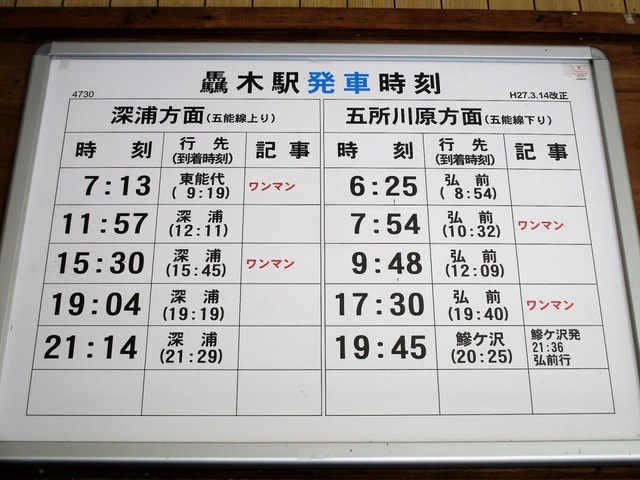 轟木駅発車時刻
4730
H27.3.14改正
深浦方面(五能線上り)
時刻 行先(到着時刻) 記事
7:13 東能代(9:19) ワンマン
11:57 深浦(12:11)
15:30 深浦(15:45) ワンマン
19:04 深浦(19:19)
21:14 深浦(21:29)
五所川原方面(五能線下り)
時刻 行先(到着時刻) 記事
6:25 弘前(8:54)
7:54 弘前(10:32) ワンマン
9:48 弘前(12:09)
17:30 弘前(19:40) ワンマン
19:45 鰺ケ沢(20:25) 鰺ケ沢発 21:36 弘前行